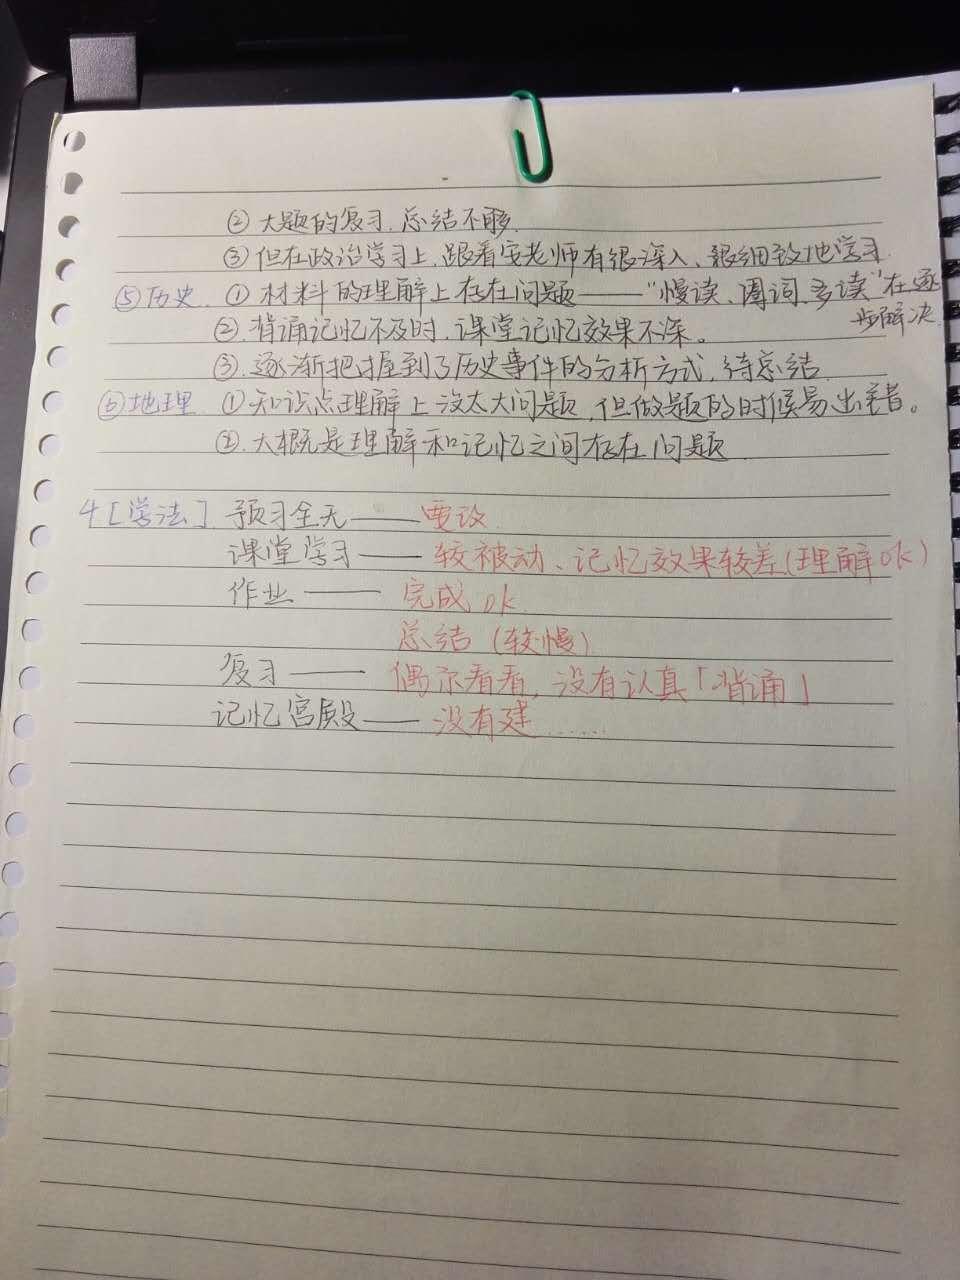 ② 大题的复习、总结不够.
③ 但在政治学习上,跟着安老师有很深入、很细致地学习.
⑤ 历史. ① 材料的理解上存在问题——“慢读、圈词、多读”在逐
步解决.
②. 背诵记忆不及时,课堂记忆效果不深。
③. 逐渐把握到了历史事件的分析方式,待总结.
⑥ 地理 ① 知识点理解上没太大问题,但做题的时候易出差错。
②. 大概是理解和记忆之间存在问题.
4 [学法]. 预习全无——要设.
课堂学习——较被动、记忆效果较差(理解ok)
作业——完成 ok.
总结 (较慢)
复习——偶尔看看,没有认真「背诵」
记忆宫殿——没有建......